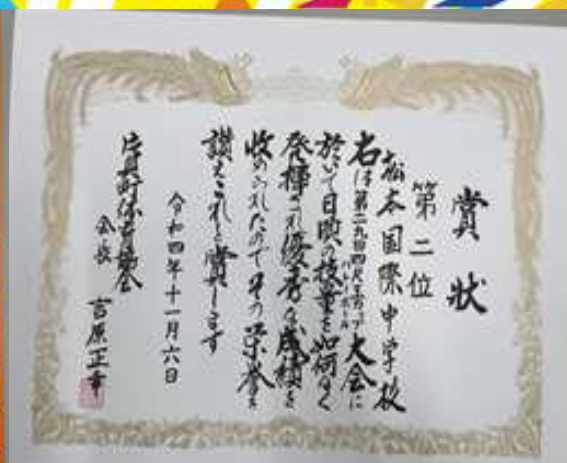 賞状
第二位
松本国際中学校
右は第二九回
大会に
於いて日頃の技量を如何なく
発揮され優秀な成績を
收められたのでその栄誉を
讃えこれを賞します
令和四年十一月六日
会長 吉原正幸